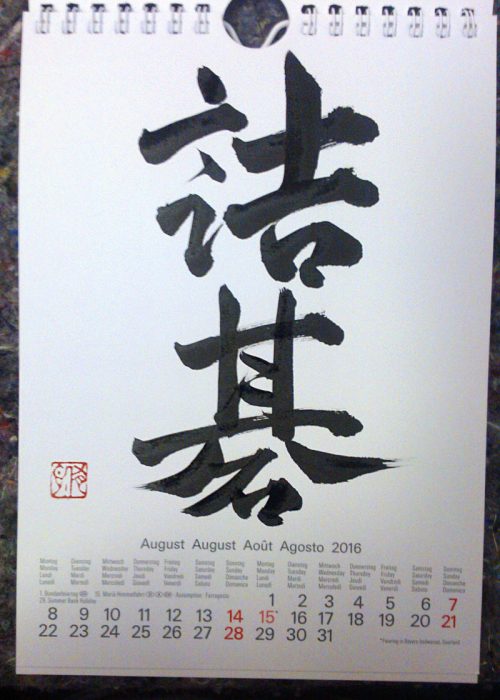 詰碁
August August Août Agosto 2016
Montag Dienstag Mittwoch Donnerstag Freitag Samstag Sonntag Montag Dienstag Mittwoch Donnerstag Freitag Samstag Sonntag
Monday Tuesday Wednesday Thursday Friday Saturday Sunday Monday Tuesday Wednesday Thursday Friday Saturday Sunday
Lundi Mardi Mercredi Jeudi Vendredi Samedi Dimanche Lundi Mardi Mercredi Jeudi Vendredi Samedi Dimanche
Lunedì Martedì Mercoledì Giovedì Venerdì Sabato Domenica Lunedì Martedì Mercoledì Giovedì Venerdì Sabato Domenica
1. Bundesfeiertag 15. Mariä Himmelfahrt Assumption Ferragosto
29. Summer Bank Holiday
1 2 3 4 5 6 7
8 9 10 11 12 13 14 15* 16 17 18 19 20 21
22 23 24 25 26 27 28 29 30 31
*Feiertag in Bayern (teilweise), Saarland